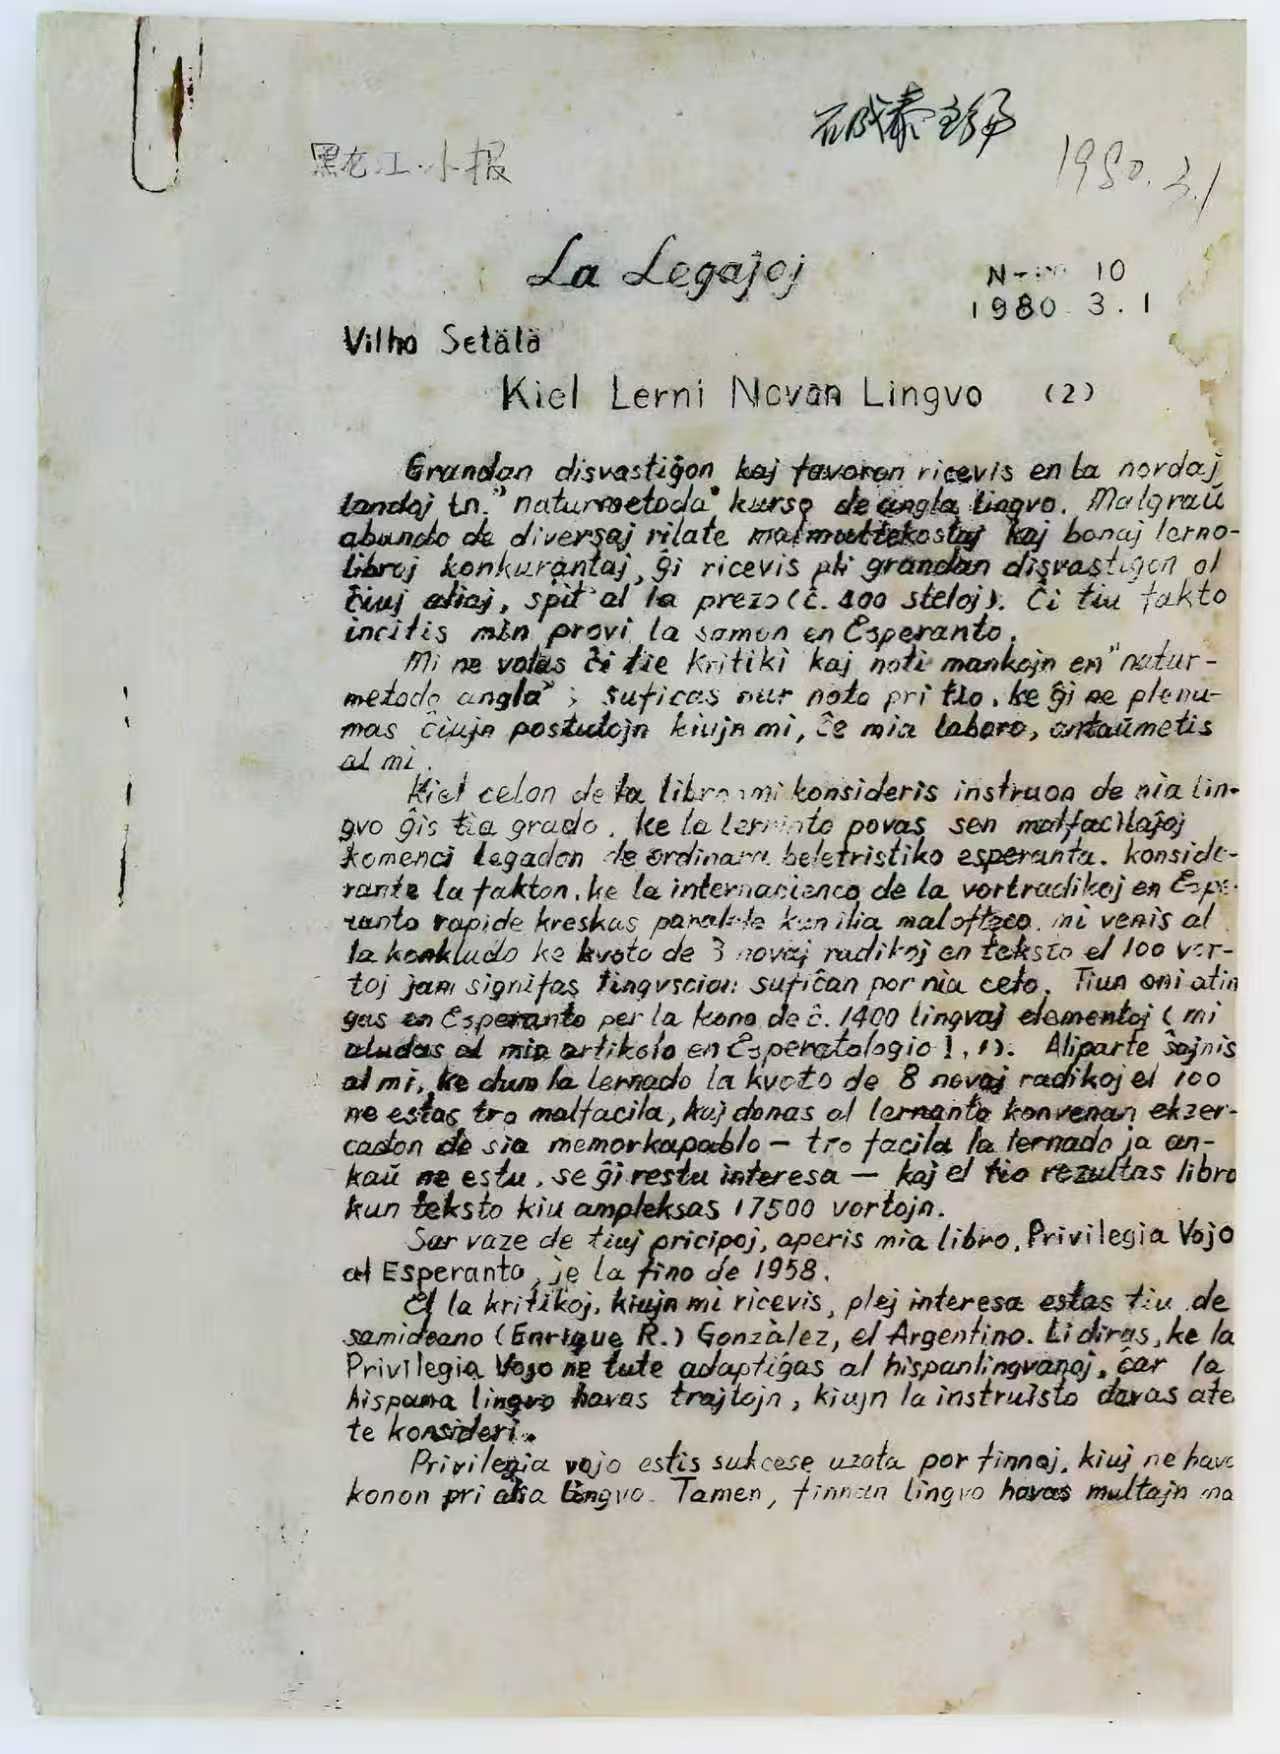 石成泰主编
黑龙江小报
1980.3.1
La Legaĵoj
N-ro 10
1980.3.1
Vilho Setälä
Kiel Lerni Novan Lingvo (2)
Grandan disvastiĝon kaj favoron ricevis en la nordaj
landaj tn. "naturmetoda" kurso de angla lingvo. Malgraŭ
abundo de diversaj rilate malmultekostaj kaj bonaj lerno-
libroj konkurantaj, ĝi ricevis pli grandan disvastiĝon ol
ĉiuj aliaj, spit' al la prezo (ĉ. 400 steloj). Ĉi tiu fakto
incitis min provi la samon en Esperanto.
Mi ne volas ĉi tie kritiki kaj noti mankojn en "natur-
metodo angla"; suficas nur noto pri tio, ke ĝi ne plenu-
mas ĉiujn postulojn kiujn mi, ĉe mia laboro, antaŭmetis
al mi.
Kiel celon de la libro mi konsideris instruon de nia lin-
gvo ĝis tia grado, ke la lerninto povas sen malfacilaĵoj
komenci legadon de ordinara beletristiko esperanta. Konside-
rante la fakton, ke la internacieco de la vortradikoj en Espe-
ranto rapide kreskas paralele kun ilia malofteco, mi venis al
la konkludo ke kvoto de 3 novaj radikoj en teksto el 100 vor-
toj jam signifas lingvscion sufiĉan por nia celo. Tiun oni atin
gas en Esperanto per la kono de ĉ. 1400 lingvaj elementoj (mi
aludas al mia artikolo en Esperatologio 1, 1). Aliparte ŝajnis
al mi, ke dum la lernado la kvoto de 8 novaj radikoj el 100
ne estas tro malfacila, kaj donas al lernanto konvenan ekzer-
cadon de sia memorkapablo — tro facila la lernado ja an-
kaŭ ne estu, se ĝi restu interesa — kaj el tio rezultas libro
kun teksto kiu ampleksas 17500 vortojn.
Sur vaze de tiuj pricipoj, aperis mia libro, Privilegia Vojo
al Esperanto, je la fino de 1958.
El la kritikoj, kiujn mi ricevis, plej interesa estas tiu de
samideano (Enrique R.) Gonzàlez, el Argentino. Li diras, ke la
Privilegia Vojo ne tute adaptiĝas al hispanlingvanoj, ĉar la
hispana lingvo havas trajtojn, kiujn la instruisto devas ate
te konsideri.
Privilegia vojo estis sukcese uzata por finnoj, kiuj ne hava
konon pri alia lingvo. Tamen, finnan lingvo havas multajn ma